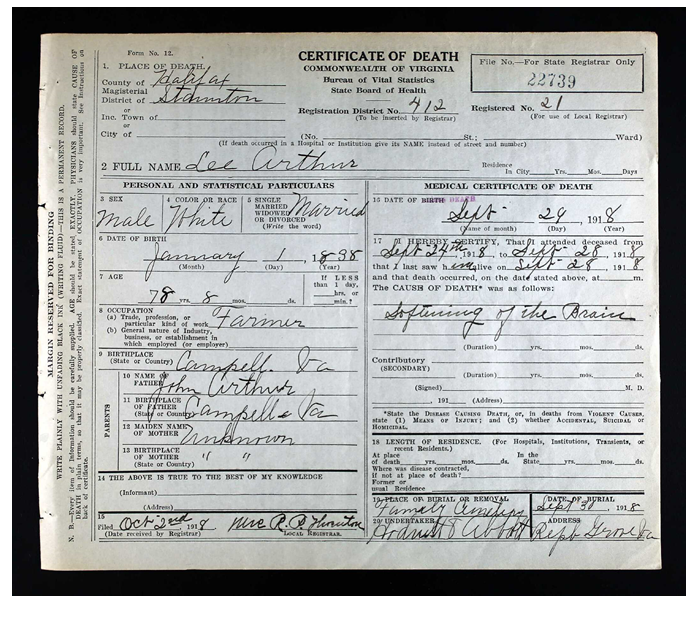 Form No. 12.
CERTIFICATE OF DEATH
COMMONWEALTH OF VIRGINIA
Bureau of Vital Statistics
State Board of Health
File No.—For State Registrar Only
22739
1. PLACE OF DEATH.
County of Halifax
Magisterial
District of Staunton
or
Inc. Town of
or
City of
Registration District No. 412
(To be inserted by Registrar)
Registered No. 21
(For use of Local Registrar)
(No. St.; Ward)
(If death occurred in a Hospital or Institution give its NAME instead of street and number)
2 FULL NAME Lee Arthur
Residence
In City Yrs. Mos. Days
PERSONAL AND STATISTICAL PARTICULARS
3 SEX
Male
4 COLOR OR RACE
White
5 SINGLE
MARRIED
WIDOWED
OR DIVORCED
(Write the word)
Married
6 DATE OF BIRTH
January 1, 1838
(Month) (Day) (Year)
7 AGE
78 yrs. 8 mos. ds.
If LESS
than 1 day,
hrs. or
min.?
8 OCCUPATION
(a) Trade, profession, or
particular kind of work Farmer
(b) General nature of Industry,
business, or establishment in
which employed (or employer)
9 BIRTHPLACE
(State or Country) Campell. Va
PARENTS
10 NAME OF
FATHER John Arthur
11 BIRTHPLACE
OF FATHER
(State or Country) Campell Va
12 MAIDEN NAME
OF MOTHER Unknown
13 BIRTHPLACE
OF MOTHER
(State or Country) " "
14 THE ABOVE IS TRUE TO THE BEST OF MY KNOWLEDGE
(Informant)
(Address)
15
Filed Oct 2nd 1918
(Date received by Registrar)
LOCAL REGISTRAR.
MEDICAL CERTIFICATE OF DEATH
16 DATE OF BIRTH DEATH
Sept 29, 1918
(Name of month) (Day) (Year)
17 I HEREBY CERTIFY, That I attended deceased from
Sept 24th, 1918, to Sept 28, 1918
that I last saw him alive on Sept 28, 1918
and that death occurred, on the date stated above, at m.
The CAUSE OF DEATH* was as follows:
Softening of the Brain
(Duration) yrs. mos. ds.
Contributory
(SECONDARY)
(Duration) yrs. mos. ds.
(Signed) M. D.
, 191 (Address)
*State the DISEASE CAUSING DEATH, or, in deaths from VIOLENT CAUSES,
state (1) MEANS OF INJURY; and (2) whether ACCIDENTAL, SUICIDAL or
HOMICIDAL.
18 LENGTH OF RESIDENCE. (For Hospitals, Institutions, Transients, or
recent Residents.)
At place
of death yrs. mos. ds.
In the
State yrs. mos. ds.
Where was disease contracted,
If not at place of death?
Former or
usual Residence
19 PLACE OF BURIAL OR REMOVAL
Family
DATE OF BURIAL
Sept 30, 1918
20 UNDERTAKER
Abbott
ADDRESS
Va
MARGIN RESERVED FOR BINDING
WRITE PLAINLY WITH UNFADING BLACK INK (WRITING FLUID)—THIS IS A PERMANENT RECORD.
N. B.—Every item of Information should be carefully supplied. AGE should be stated EXACTLY. PHYSICIANS should state CAUSE OF
DEATH in plain terms, so that it may be properly classified. Exact statement of OCCUPATION is very important. See Instructions on
back of certificate.